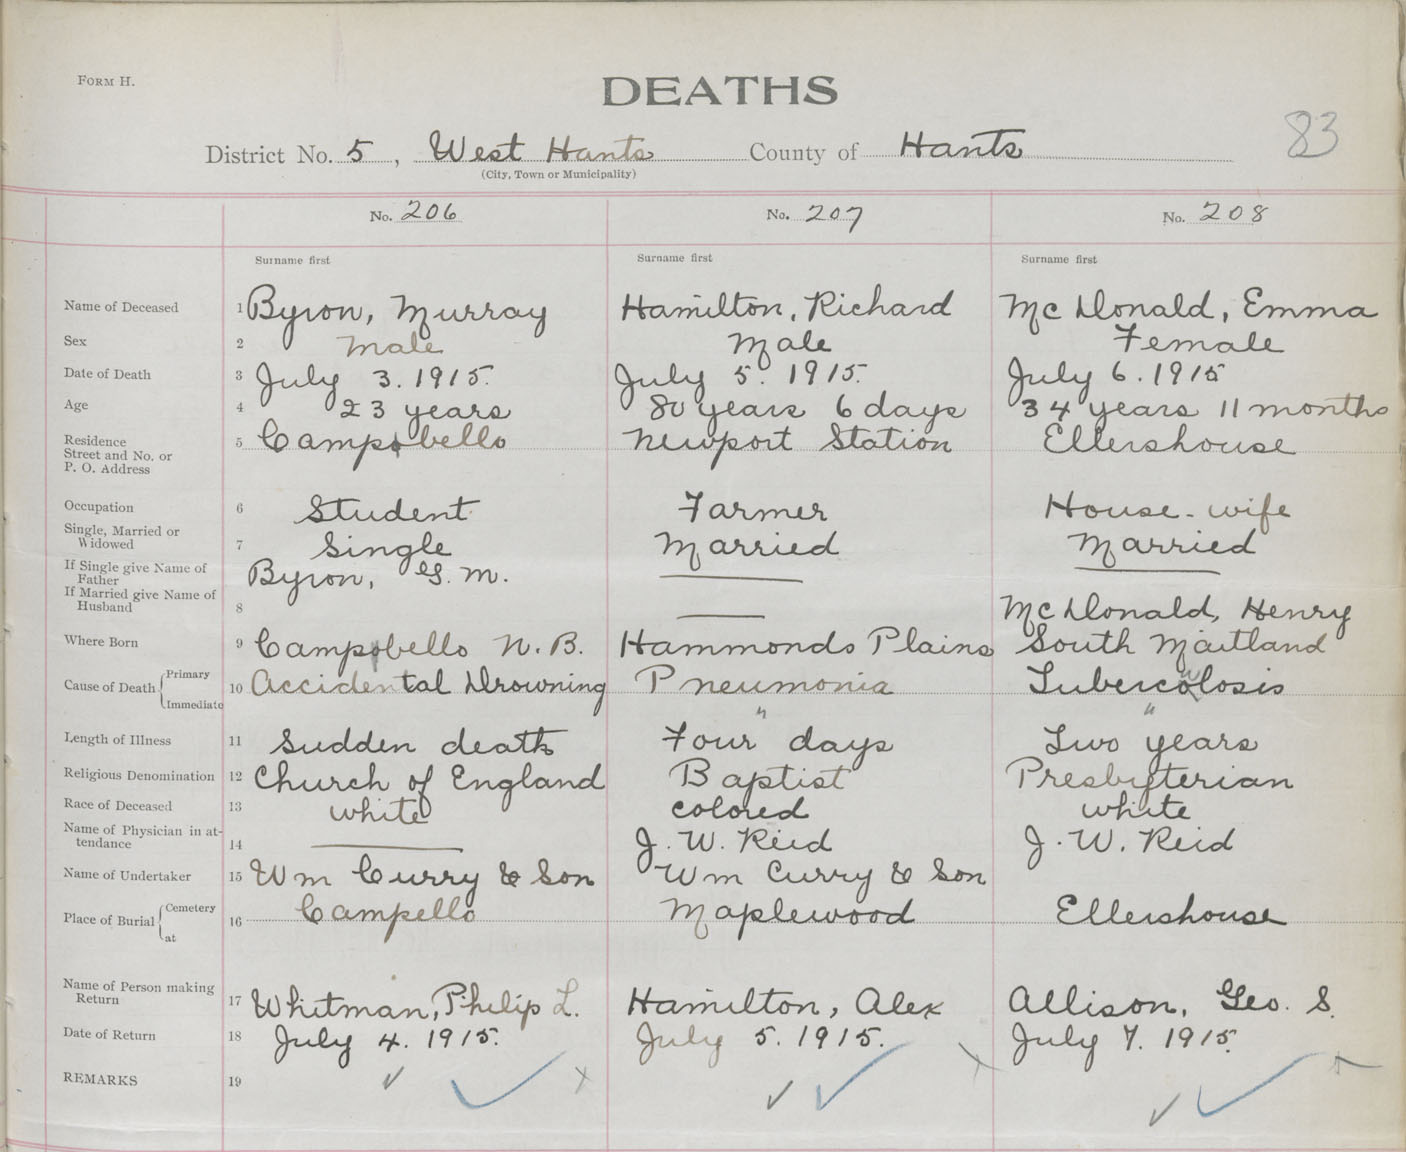 FORM H.
DEATHS
83
District No. 5, West Hants County of Hants
(City, Town or Municipality)
No. 206 No. 207 No. 208
Surname first Surname first Surname first
Name of Deceased 1 Byron, Murray Hamilton, Richard McDonald, Emma
Sex 2 male Male Female
Date of Death 3 July 3. 1915. July 5. 1915. July 6. 1915
Age 4 23 years 80 years 6 days 34 years 11 months
Residence Street and No. or P. O. Address 5 Campobello Newport Station Ellershouse
Occupation 6 Student Farmer House-wife
Single, Married or Widowed 7 Single Married Married
If Single give Name of Father Byron, G. M.
If Married give Name of Husband 8 McDonald, Henry
Where Born 9 Campobello N.B. Hammonds Plains South Maitland
Cause of Death Primary Immediate 10 Accidental Drowning Pneumonia " Tuberculosis "
Length of Illness 11 Sudden death Four days Two years
Religious Denomination 12 Church of England Baptist Presbyterian
Race of Deceased 13 white colored white
Name of Physician in attendance 14 J. W. Reid J. W. Reid
Name of Undertaker 15 Wm Curry & Son Wm Curry & Son
Place of Burial Cemetery at 16 Campello Maplewood Ellershouse
Name of Person making Return 17 Whitman, Philip L. Hamilton, Alex Allison, Geo. S.
Date of Return 18 July 4. 1915. July 5. 1915. July 7. 1915.
REMARKS 19